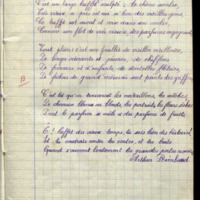 C'est un large buffet sculpté ; le chêne sombre,
Très vieux, a pris cet air si bon des vieilles gens
Le buffet est ouvert et verse dans son ombre
Comme un flot de vin vieux, des parfums engageants
Tout plein, c'est un fouillis de vieilles vieilleries,
De linges odorants et jaunes, de chiffons
De femmes et d'enfants, de dentelles flétries
De fichus de grand'mère où sont peints des griffons
C'est là qu'on trouverait les médaillons, les mèches
De cheveux blancs ou blonds, les portraits, les fleurs sèches
Dont le parfum se mêle à des parfums de fruits
O buffet du vieux temps, tu sais bien des histoires
Et tu voudrais conter tes contes, et tu bruis
Quand s'ouvrent lentement tes grandes portes noires.
Arthur Rimbaud